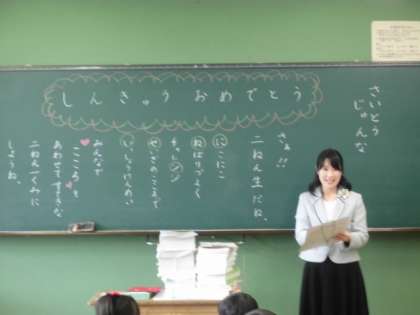 しんきゅう おめでとう
さいとう
じゅんな
さぁ!!
二ねん生だね。
にこにこ
ねばりづよく
チャレンジ
せいぎのこころで
いっしょうけんめい
みんなで
こころを
あわせて すてきな
二ねん一くみに
しようね。